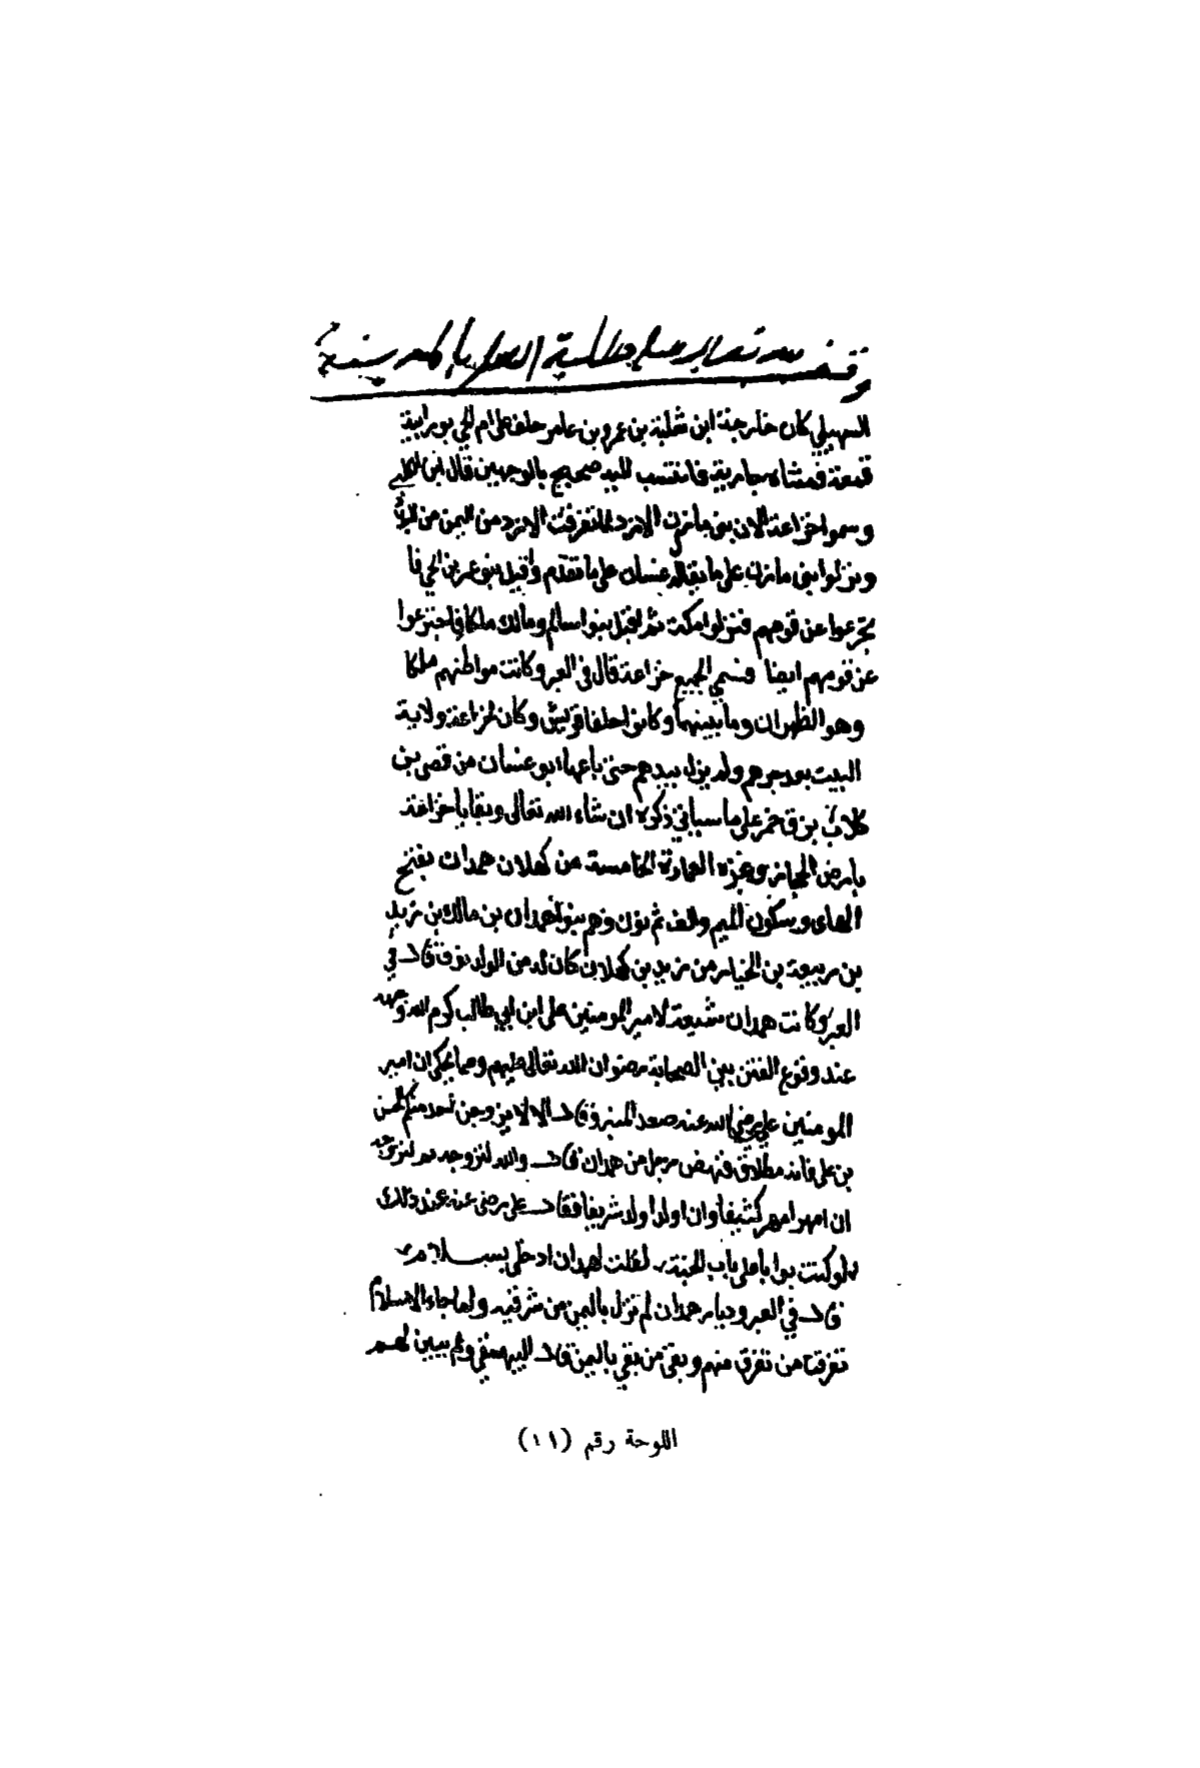 وقف لله تعالى على طلبة العلم بالمدينة
السهيلي كان خارجة ابن ثعلبة بن عمرو بن عامر خلف على ام لحي بو برابية
قمعة فمشاه بحاربية فانتسب لليد صحيح بالوجهين قال ابن الكلبي
وسموا خزاعة لان بنى مازن الازد لما تفرقت الازد من اليمن من
ونزلوا بنى مازن على ما يقال له غسان على ما تقدم واقبل بنو عمر بن لحي فا
نخزعوا عن قومهم فنزلوا مكة ثم اقبل بنو اسالم ومالك ملكا فانخزعوا
عن قومهم ايضا فسمي الجميع خزاعة قال في العبر وكانت مواطنهم ملكا
وهو الظهران وما بينهما وكانوا حلفا قريش وكان لخزاعة ولاية
البيت بعد جرهم ولم يزل بيدهم حتى باعها ابو غسان من قصى بن
كلاب بزق خمر على ما سياتي ذكره ان شاء الله تعالى وبقايا خزاعة
بارض الحجاز وغيره العمارة الخامسة من كهلان همدان بفتح
الهاى وسكون الميم والف ثم نون وهم بنوا همدان بن مالك بن زيد
بن ربيعة بن الخيار من زيد بن كهلان كان له من الولد نوف قال في
العبر وكانت همدان شيعة لامير المومنين على ابن ابي طالب كرم الله وجهه
عند وقوع الفتن بين الصحابة رضوان الله تعالى عليهم ومما يحكى ان امير
المومنين علي رضي الله عنه صعد المنبر وقال الا لا يزوجن احد منكم الحسن
بن على فانه مطلاق فنهض رجل من همدان قال والله لنزوجه ثم لنزوجه
ان امهر امهر كثيفا وان اولد اولد شريفا فقال على رضى عنه عند ذلك
لو كنت بوابا على باب الجنة لقلت لهمدان ادخلى بسلام
قال في العبر وديار همدان لم تزل باليمن من شرقيه ولما جاء الاسلام
تفرقت من تفرق منهم وبقى من بقي باليمن قال البيهقي ولم يبين لهم
اللوحة رقم (١١)